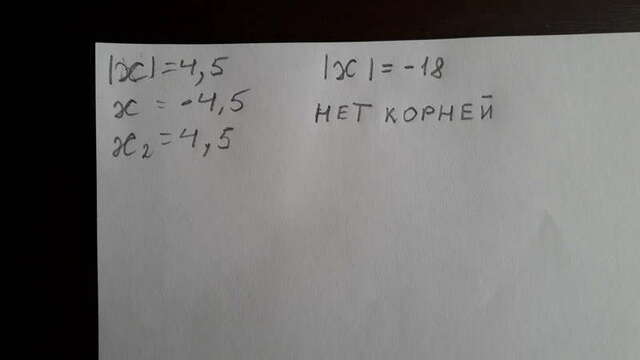 |x|=4,5
x = -4,5
x₂=4,5
|x|=-18
НЕТ КОРНЕЙ